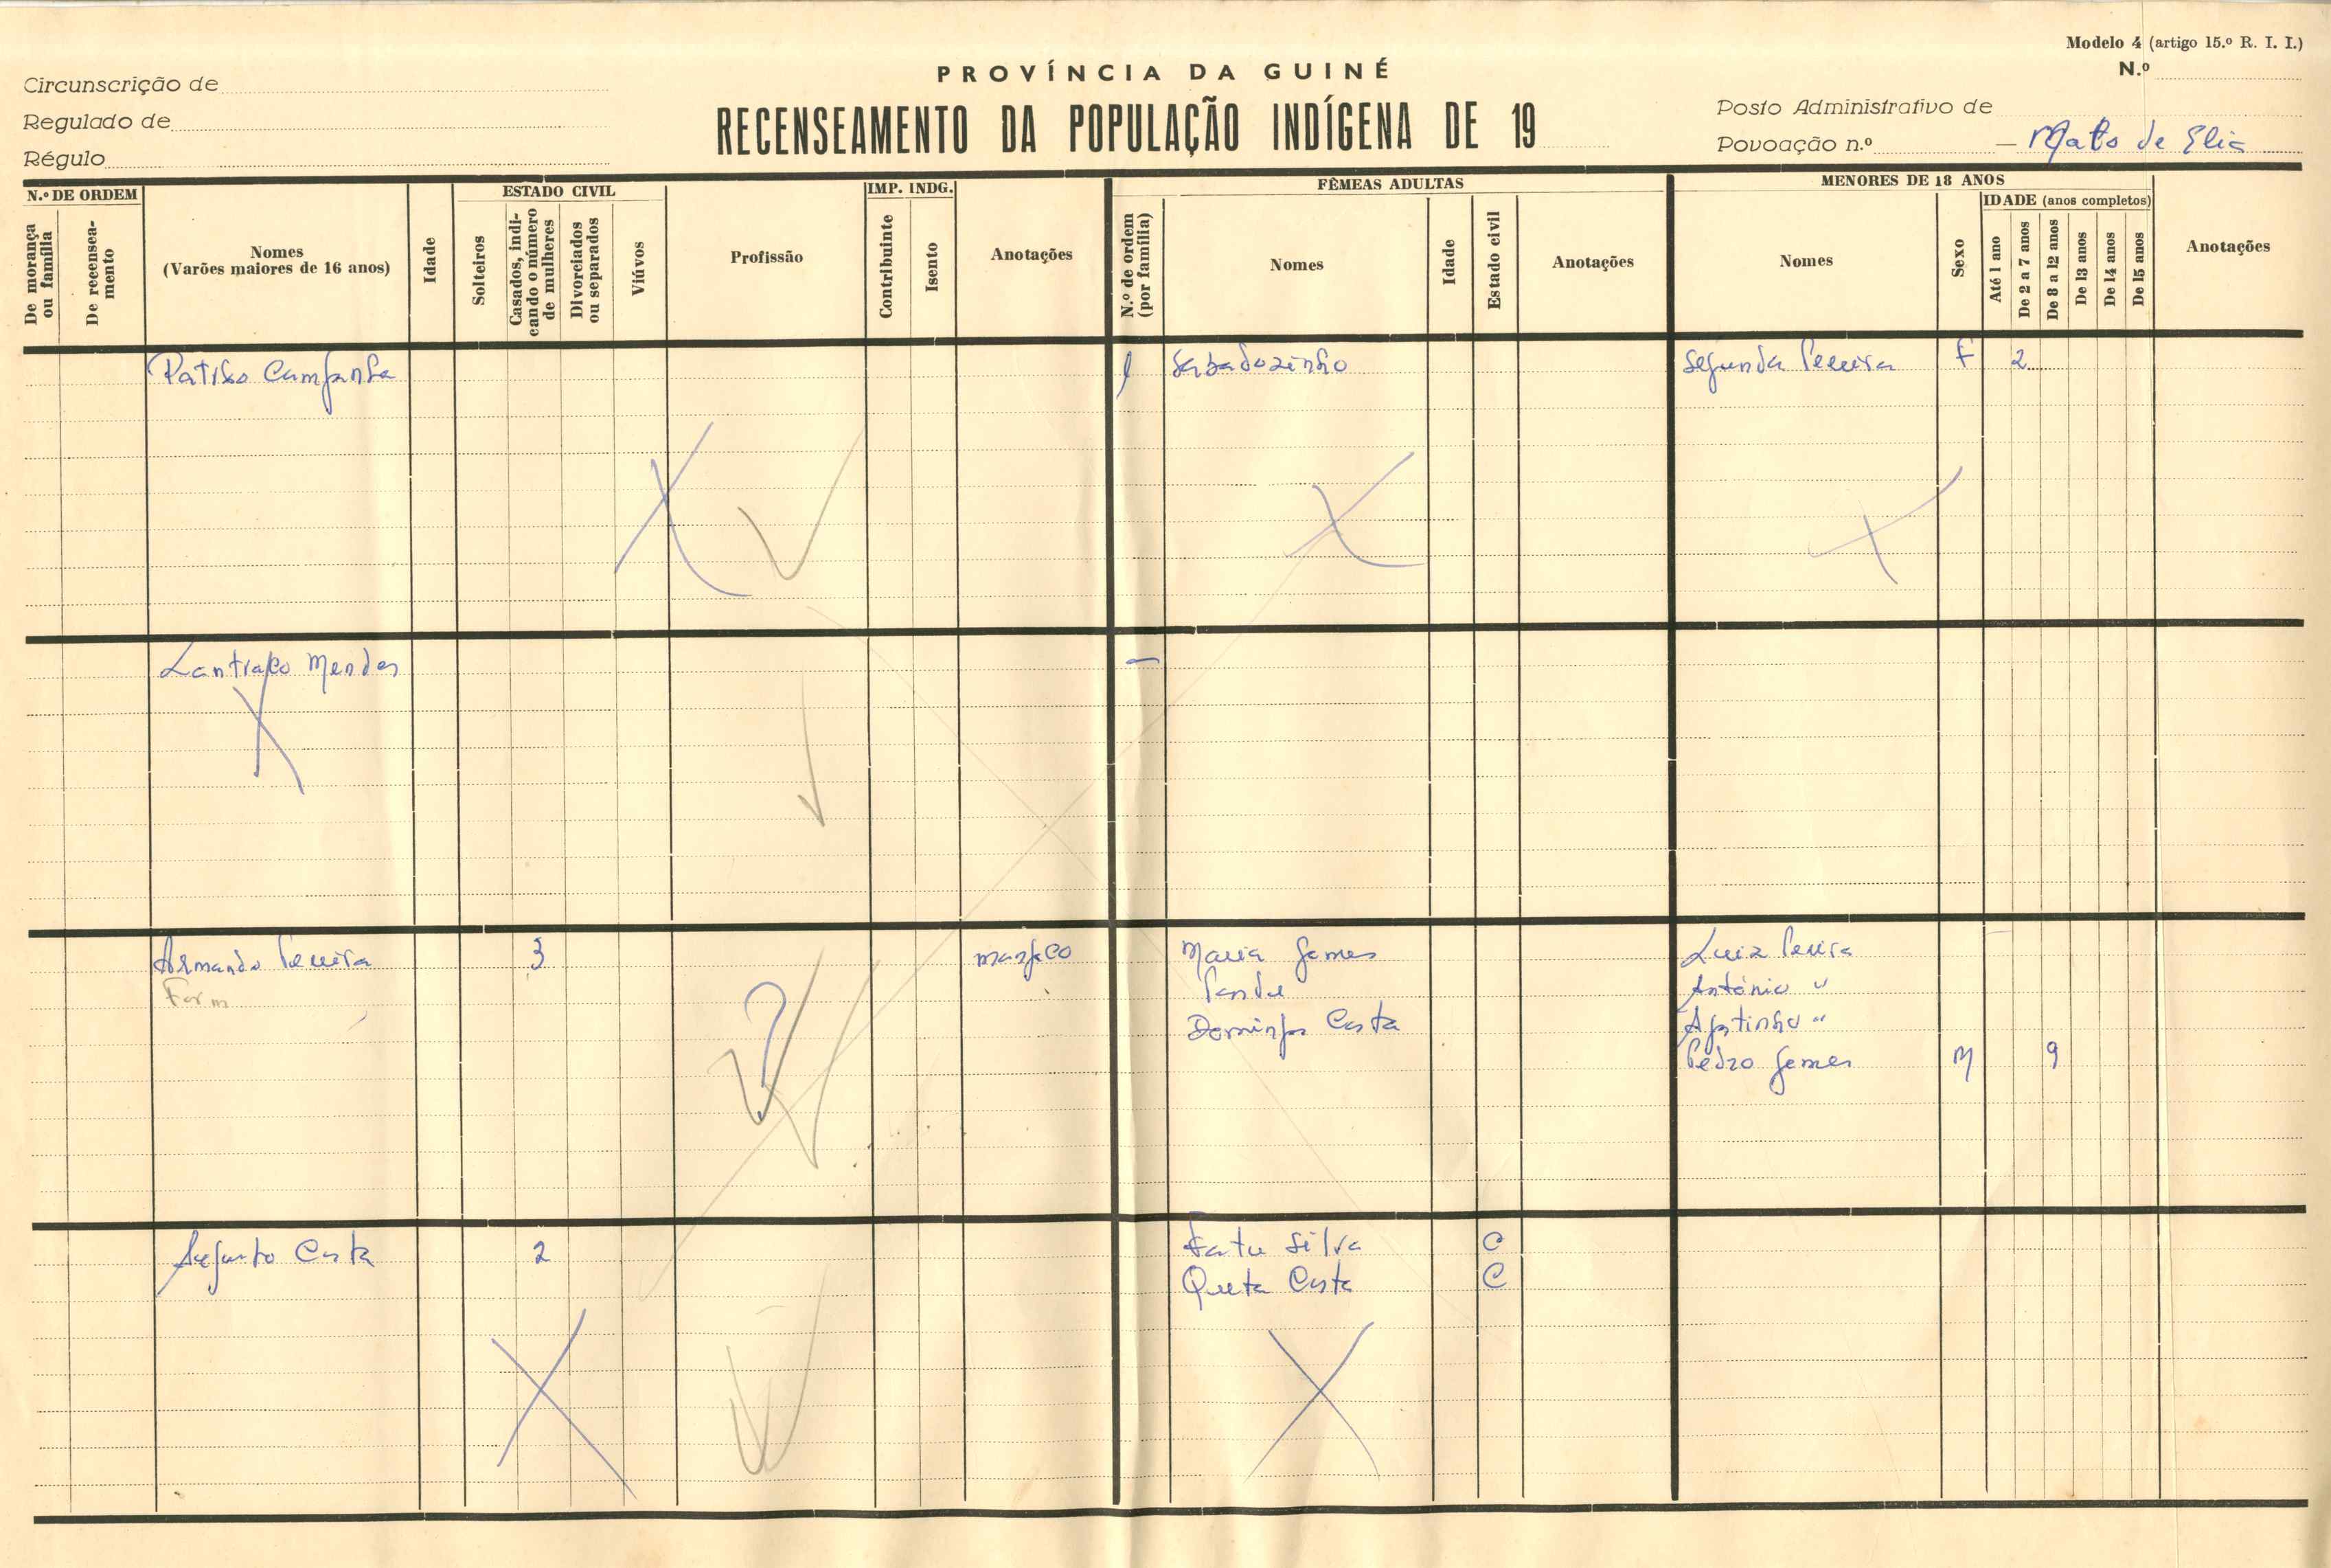 Modelo 4 (artigo 15.º R. I. I.)
N.º
PROVÍNCIA DA GUINÉ
RECENSEAMENTO DA POPULAÇÃO INDÍGENA DE 19
Circunscrição de
Regulado de
Régulo
Posto Administrativo de
Povoação n.º — Mato de Elia
N.º DE ORDEM
De morança ou família
De recenseamento
Nomes
(Varões maiores de 16 anos)
Idade
ESTADO CIVIL
Solteiros
Casados, indicando o número de mulheres
Divorciados ou separados
Viúvos
Profissão
IMP. INDG.
Contribuinte
Isento
Anotações
FÊMEAS ADULTAS
N.º de ordem (por família)
Nomes
Idade
Estado civil
Anotações
MENORES DE 18 ANOS
Nomes
Sexo
IDADE (anos completos)
Até 1 ano
De 2 a 7 anos
De 8 a 12 anos
De 13 anos
De 14 anos
De 15 anos
Anotações
1 Sabadozinho Segunda Pereira F 2
Mendes —
Armando Pereira 3 manjaco Maria Gomes Luiz Pereira
António "
Domingas Costa Agostinho "
Pedro Gomes M 9
Augusto Costa 2 Fatu Silva C
Costa C